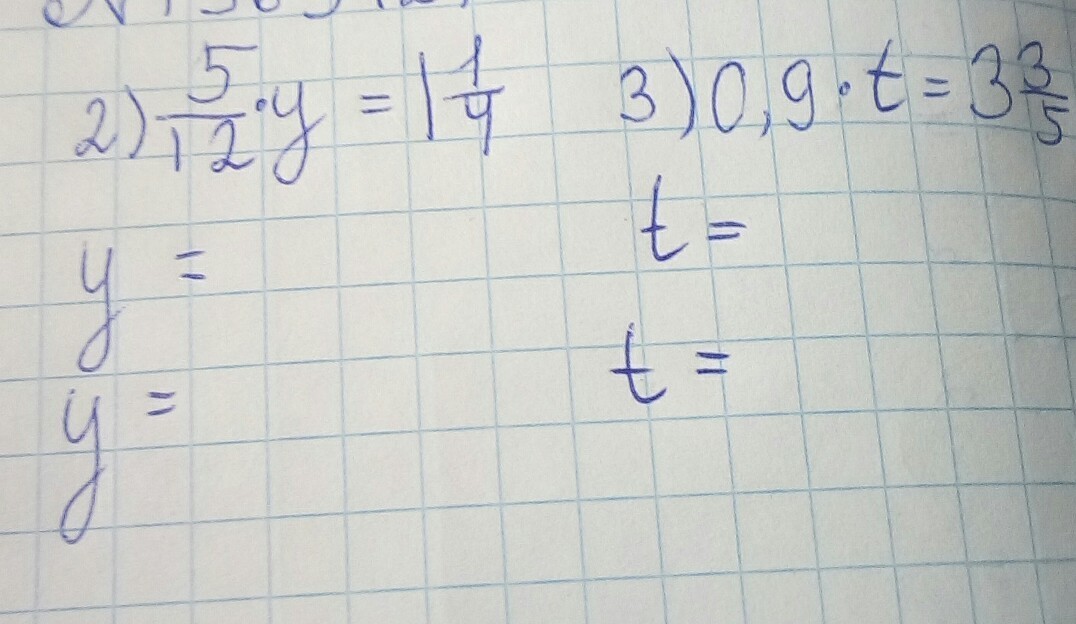 2) 5/12 · y = 1 1/4
y =
y =
3) 0,9 · t = 3 3/5
t =
t =